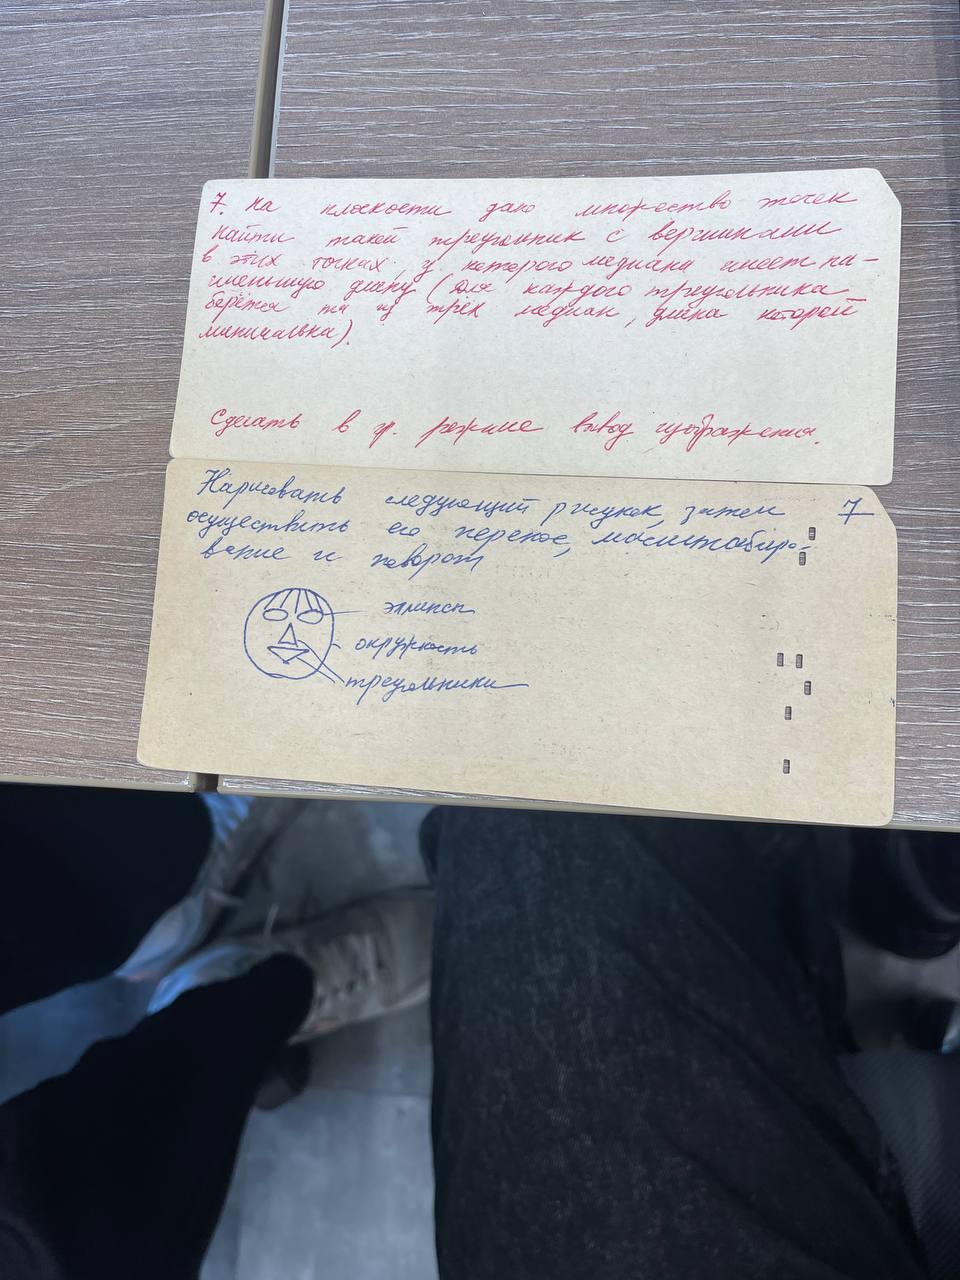 7. На плоскости дано множество точек
найти такой треугольник с вершинами
в этих точках, у которого медиана имеет на-
именьшую длину (для каждого треугольника
берётся та из трёх медиан, длина которой
минимальна).
Сделать в гр. режиме вывод изображения.
Нарисовать следующий рисунок, затем 7
осуществить его перенос, масштабиро-
вание и поворот
эллипсы
окружность
треугольники